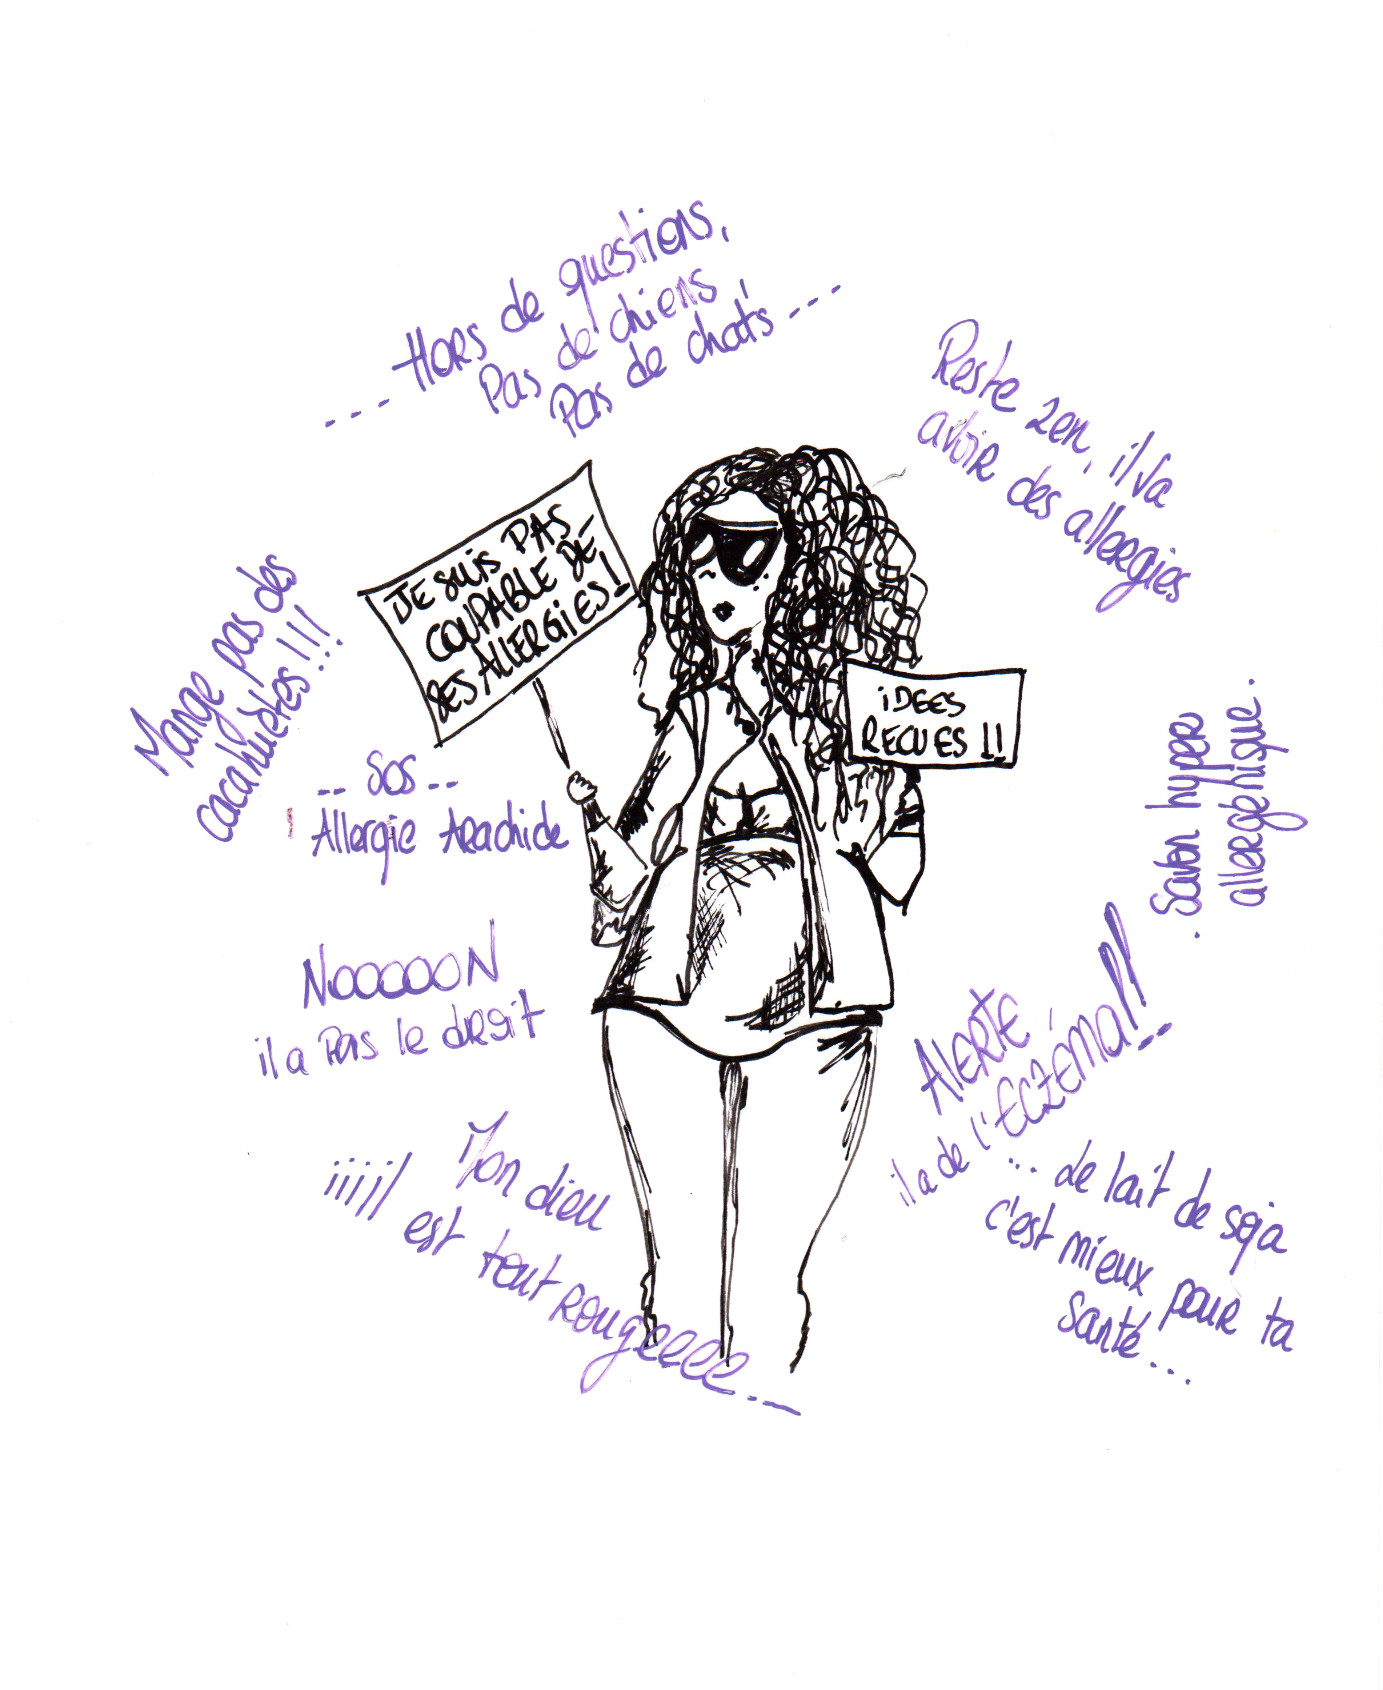 --- HORS de questions,
Pas de chiens
Pas de chats ---
Reste zen, il va
avoir des allergies
JE SUIS PAS
COUPABLE DE
SES ALLERGIES!
Mange pas des
cacahuètes!!!
iDEES
RECUES !!
-- SOS --
Allergie Arachide
. Savon hyper
allergéhique .
NOOOOON
il a Pas le droit
AlERTE
il a de l'ECZÉMA!!--
Mon dieu
iiiil est tout Rougeeeee---
... de lait de soja
c'est mieux pour ta
Santé...